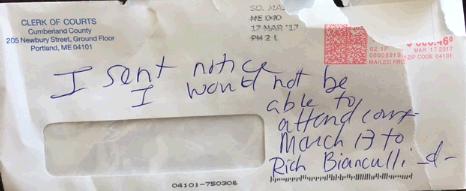 CLERK OF COURTS
Cumberland County
205 Newbury Street, Ground Floor
Portland, ME 04101
ME 040
17 MAR '17
PM 2 L
MAR 17 2017
MAILED FROM ZIP CODE 04101
I sent notice
I would not be
able to
attend court
March 17 to
Rich Bianculli
04101-750306